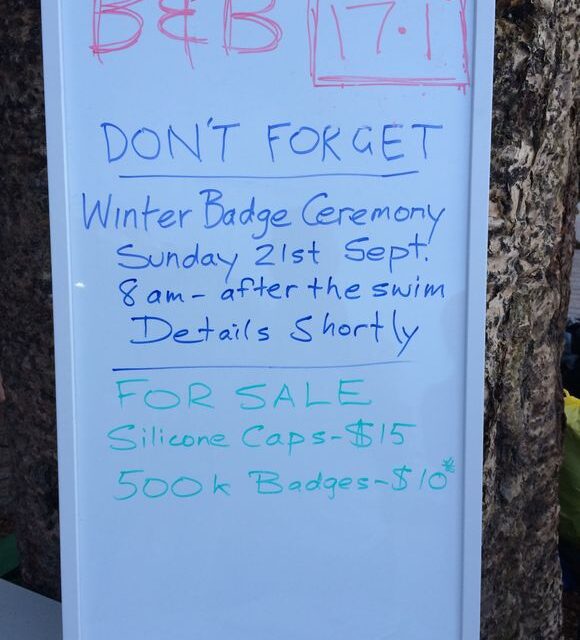 B & B 17.1
DON'T FORGET
Winter Badge Ceremony
Sunday 21st Sept.
8 am - after the swim
Details Shortly
FOR SALE
Silicone Caps - $15
500k Badges - $10*